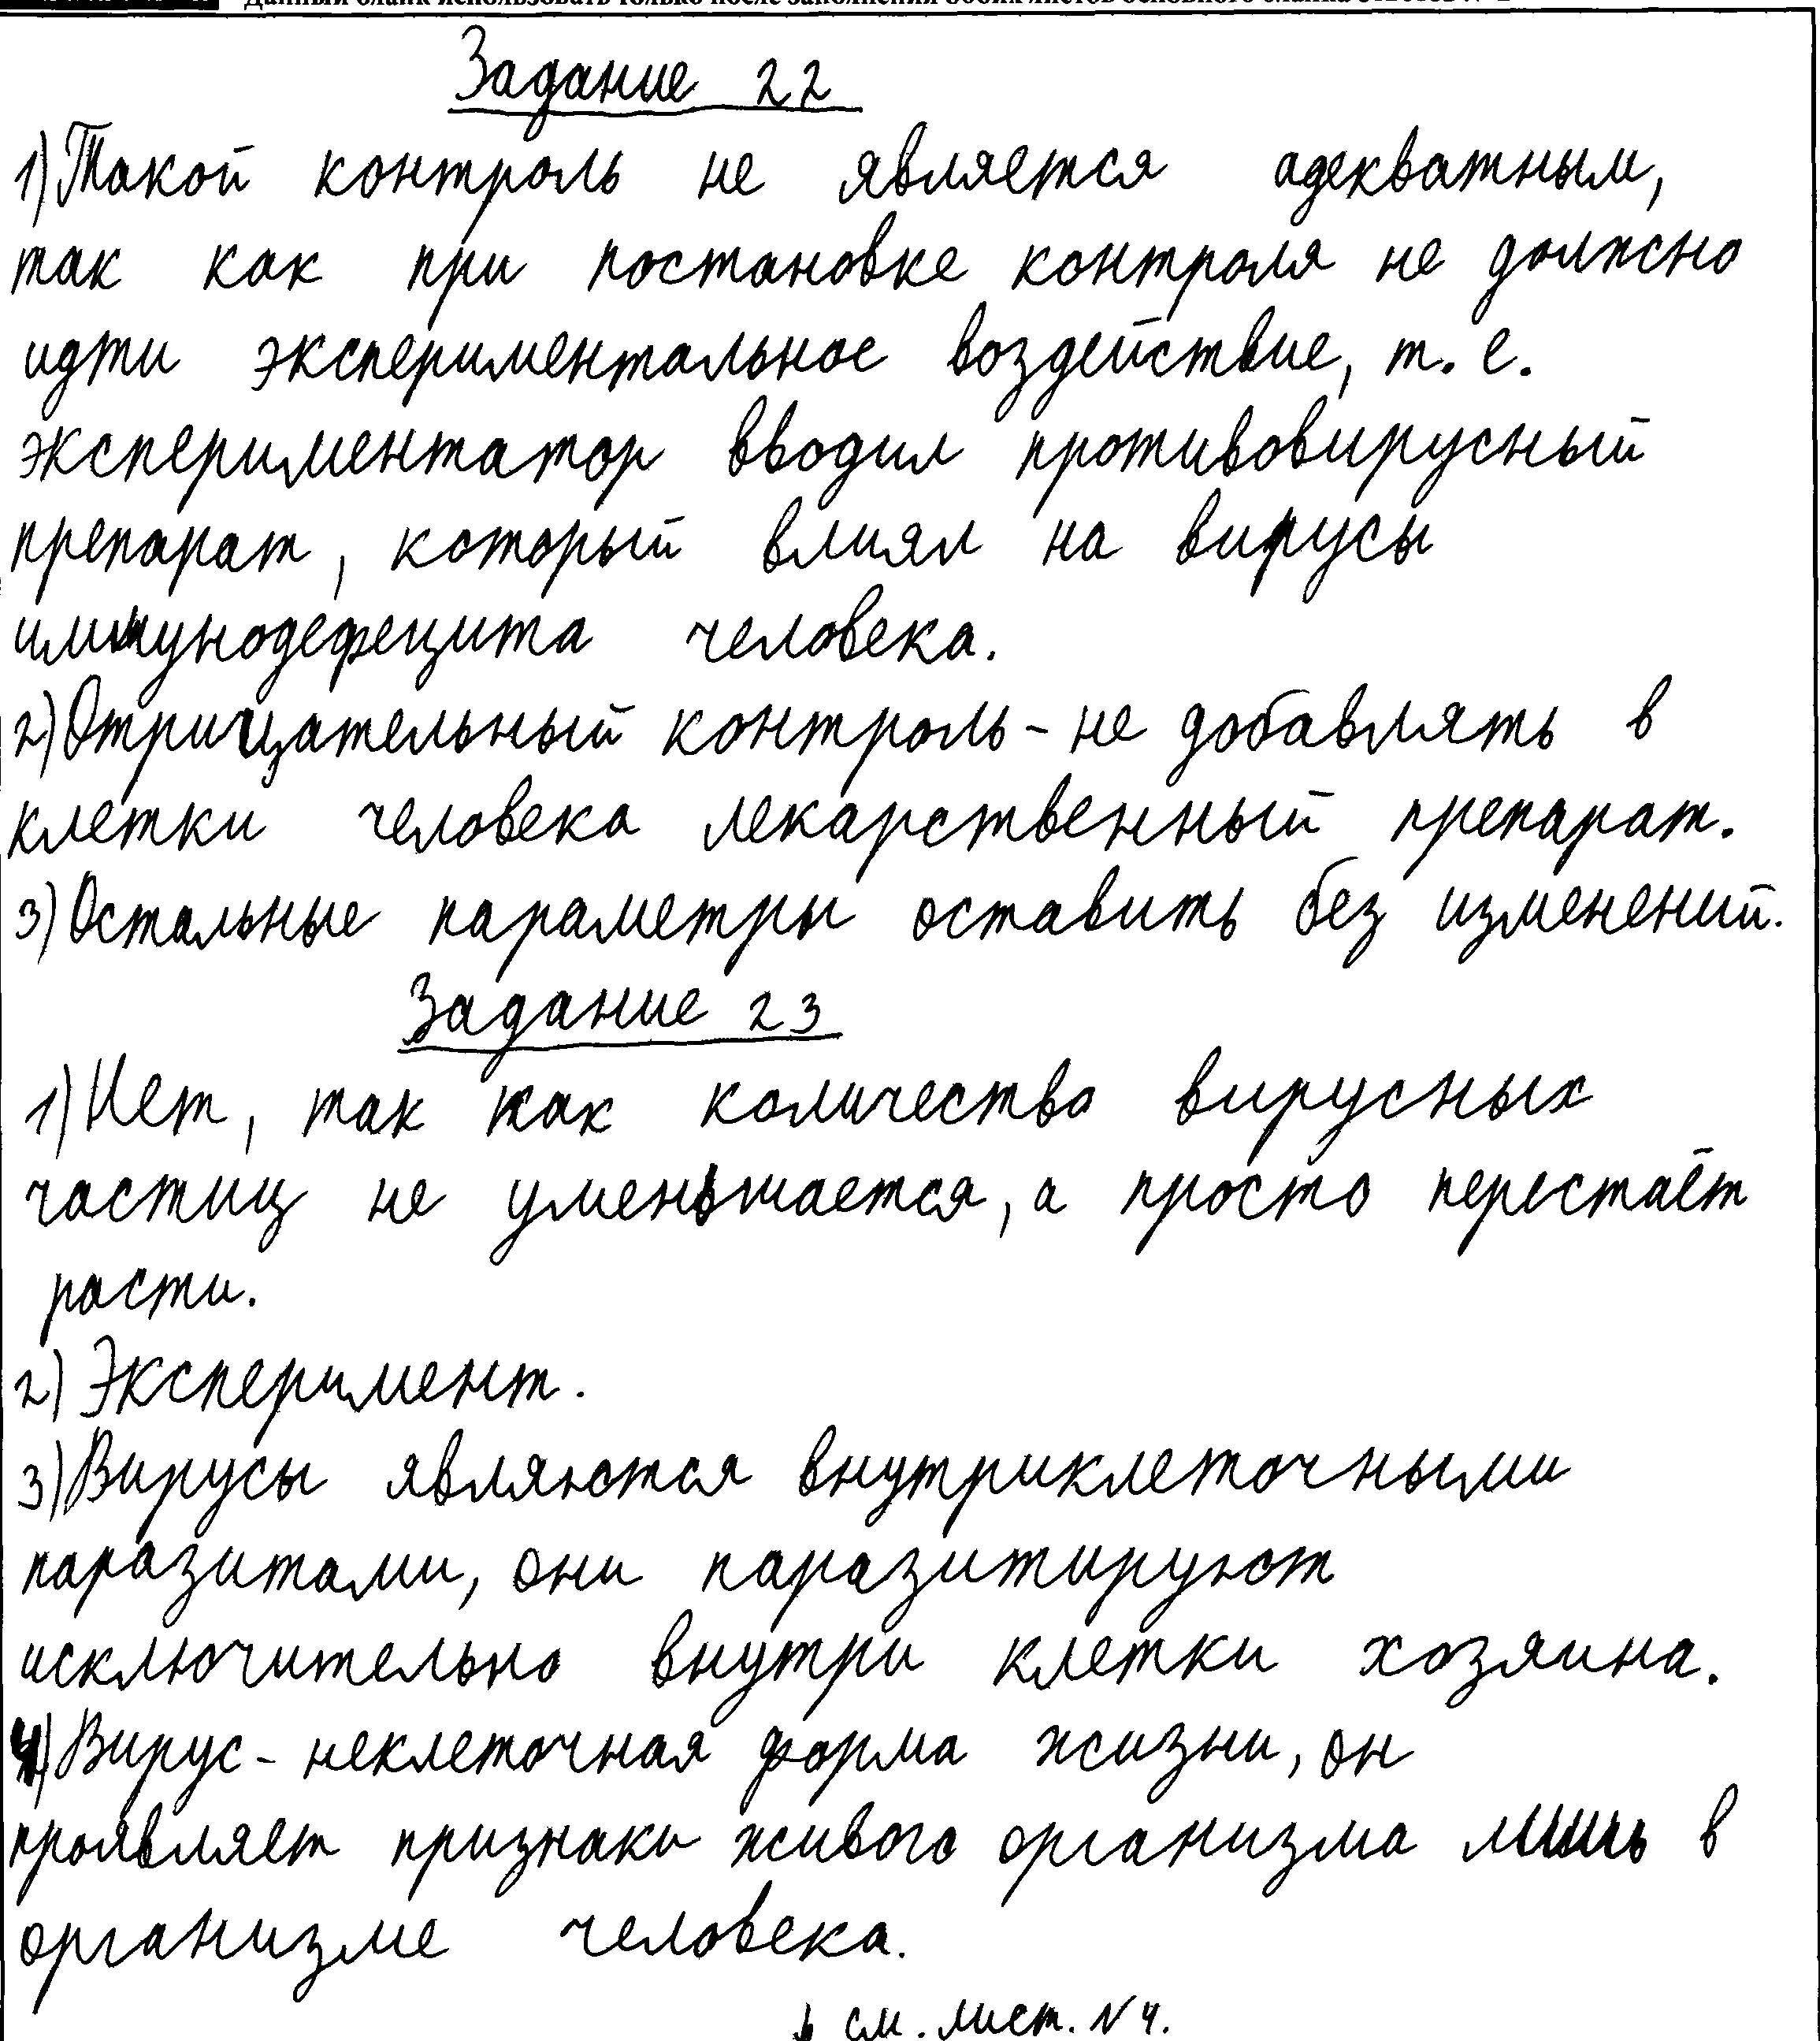 Данный бланк использовать только после заполнения обоих листов основного бланка ответов № 2
Задание 22
1) Такой контроль не является адекватным,
так как при постановке контроля не должно
идти экспериментальное воздействие, т. е.
экспериментатор вводил противовирусный
препарат, который влиял на вирусы
иммунодефецита человека.
2) Отрицательный контроль - не добавлять в
клетки человека лекарственный препарат.
3) Остальные параметры оставить без изменений.
Задание 23
1) Нет, так как количество вирусных
частиц не уменьшается, а просто перестаёт
расти.
2) Эксперимент.
3) Вирусы являются внутриклеточными
паразитами, они паразитируют
исключительно внутри клетки хозяина.
4) Вирус - неклеточная форма жизни, он
проявляет признаки живого организма лишь в
организме человека.
см. лист. №4.